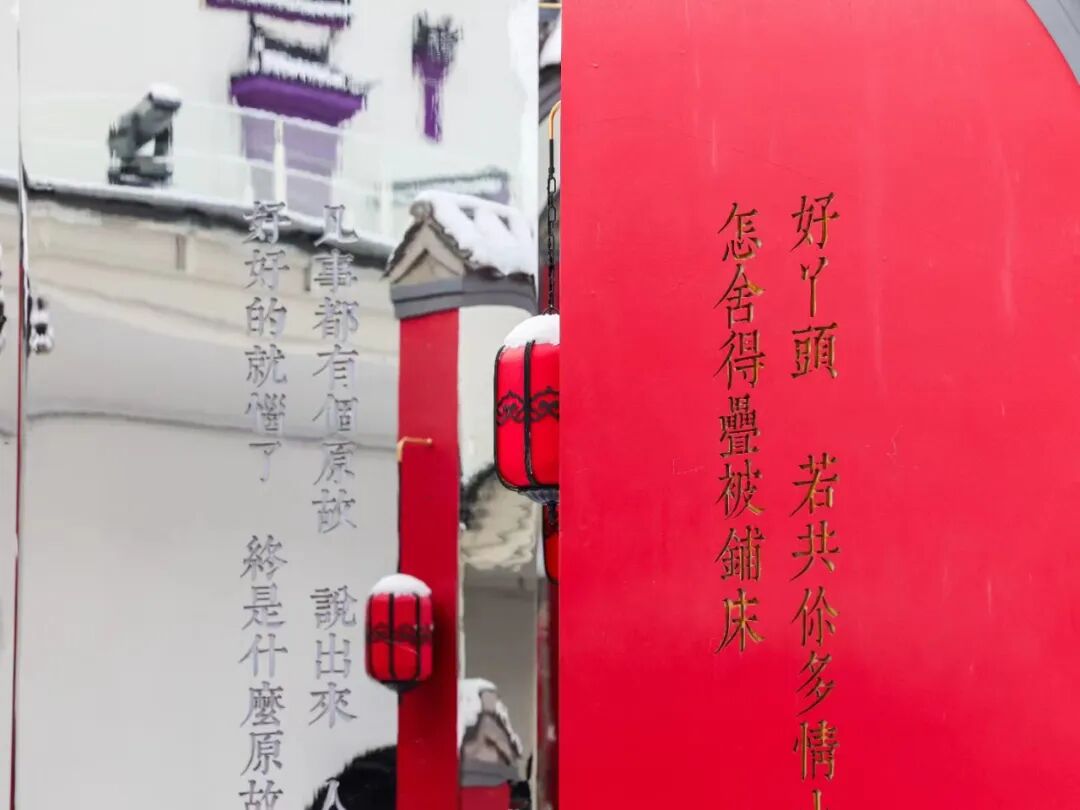 好丫頭 若共你多情
怎舍得疊被鋪床
凡事都有個原故 說出來 人
好好的就惱了 終是什麼原故